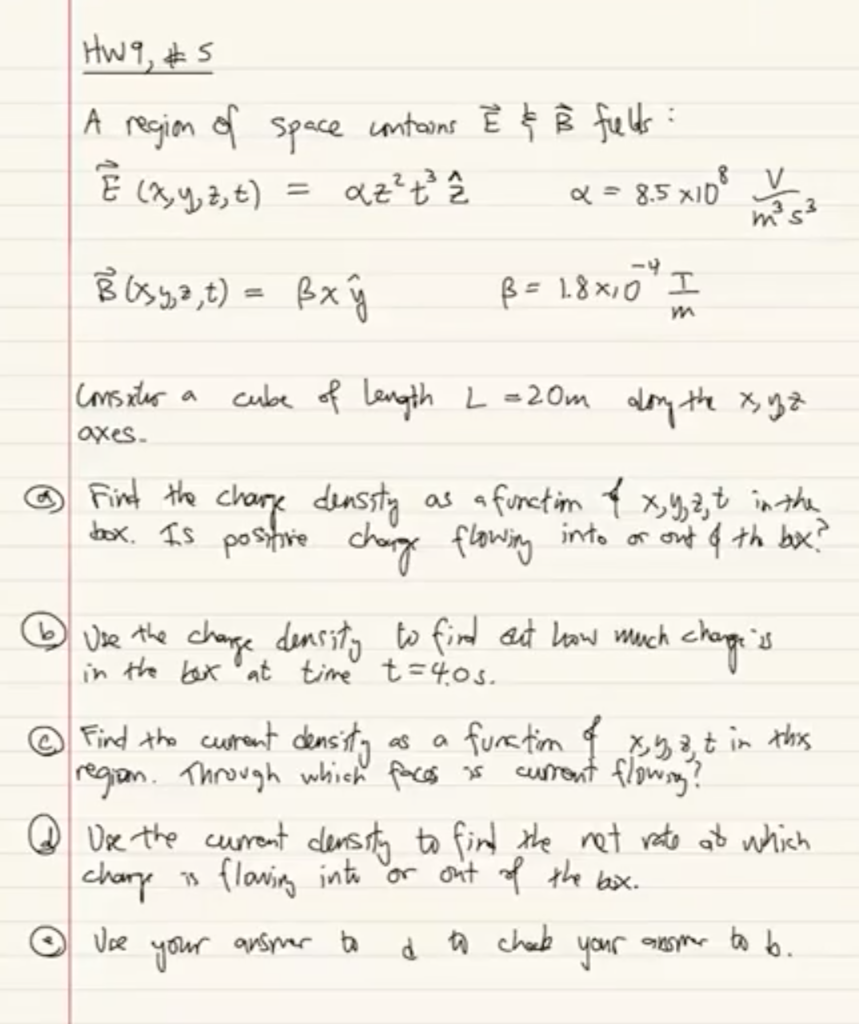 HW9, # 5
A region of space contains E⃗ & B⃗ fields:
E⃗ (x,y,z,t) = αz²t³ ẑ α = 8.5 x10⁸ V/m³s³
B⃗(x,y,z,t) = βx ŷ β = 1.8×10⁻⁴ T/m
Consider a cube of length L = 20m along the x, y, z
axes.
(a) Find the charge density as a function of x,y,z,t in the
box. Is positive charge flowing into or out of the box?
(b) Use the charge density to find out how much charge is
in the box at time t = 4.0 s.
(c) Find the current density as a function of x,y,z,t in this
region. Through which faces is current flowing?
(d) Use the current density to find the net rate at which
charge is flowing into or out of the box.
(e) Use your answer to d to check your answer to b.